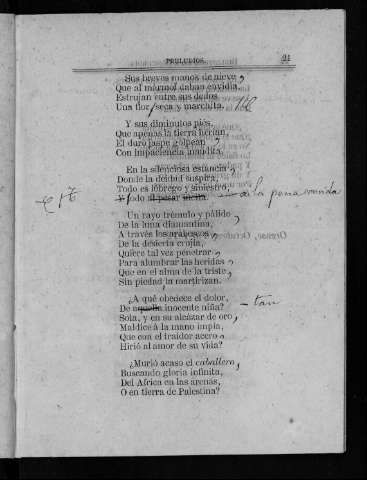 PRELUDIOS. 21
Sus breves manos de nieve,
Que al mármol daban envidia,
Estrujan entre sus dedos
Una flor seca y marchita.
Y sus diminutos piés,
Que apenas la tierra herían,
El duro jaspe golpean,
Con impaciencia inaudita.
En la silenciosa estancia,
Donde la deidad suspira,
Todo es lóbrego y siniestro,
Y todo al pesar a la pena convida
Un rayo trémulo y pálido,
De la luna diamantina,
A través los arabescos,
De la desierta crujía,
Quiere tal vez penetrar,
Para alumbrar las heridas,
Que en el alma de la triste,
Sin piedad la martirizan.
¿A qué obedece el dolor,
De aquella inocente niña? — tan
Sola, y en su alcázar de oro,
Maldice á la mano impía,
Que con el traidor acero,
Hirió al amor de su vida?
¿Murió acaso el caballero,
Buscando gloria infinita,
Del Africa en las arenas,
O en tierra de Palestina?